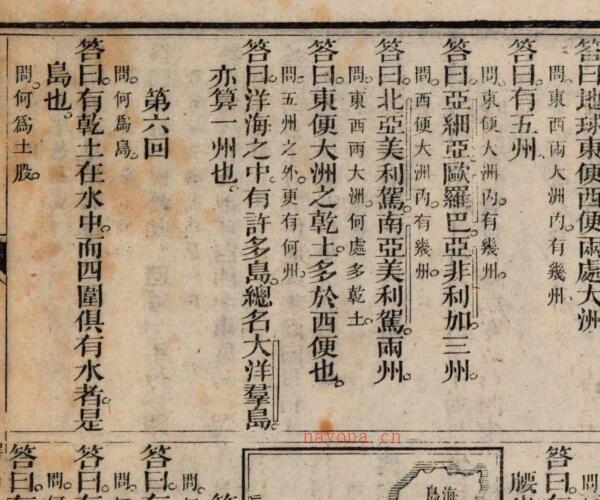 答曰地球東便西便兩處大洲
問東西兩大洲內有幾州
答曰有五州
問東便大洲內有幾州
答曰亞細亞歐羅巴亞非利加三州
問西便大洲內有幾州
答曰北亞美利駕南亞美利駕兩州
問東西兩大洲何處多乾土
答曰東便大洲之乾土多於西便也
問五州之外更有何州
答曰洋海之中有許多島總名大洋羣島
亦算一州也
第六回
問何爲島
答曰有乾土在水中而四圍俱有水者是
島也
問何爲土股
答曰
腰
海
島
答曰有
問
答曰
問
答曰有
問
答曰有
nayona.cn